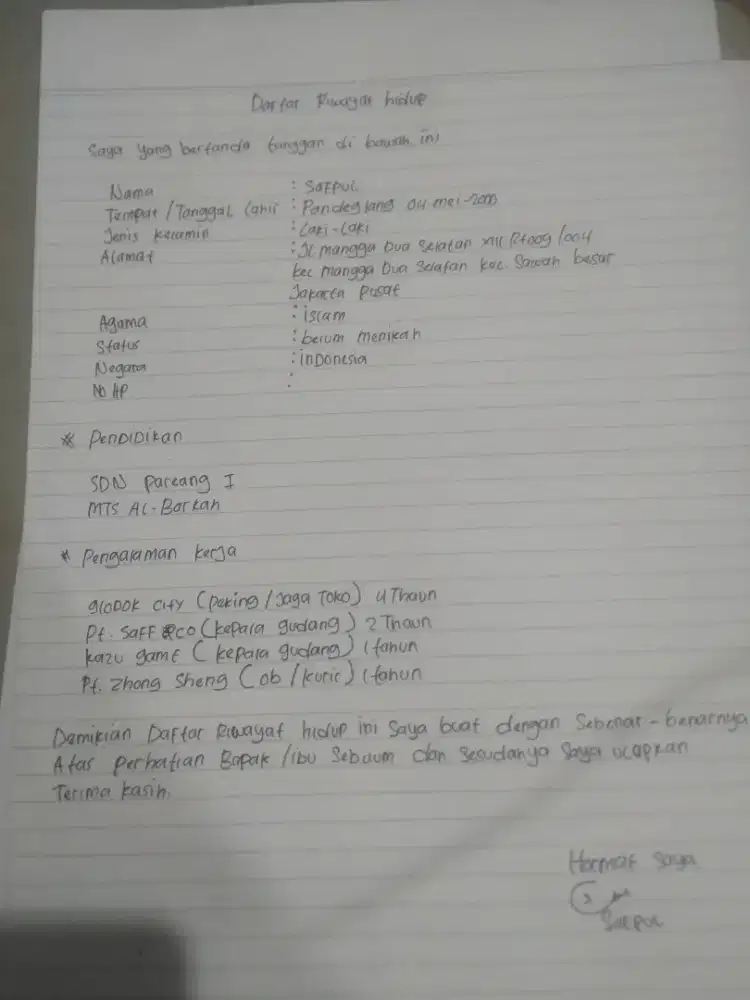 Daftar Riwayat hidup
Saya yang bertanda tanggan di bawah ini
Nama : SaEPUL
Tempat / Tanggal Lahir : Pandeglang 04 mei-2000
Jenis Kelamin : Laki-Laki
Alamat : JL mangga Dua Selatan XIII Rt009/004
kel mangga Dua Selatan kec. Sawah besar
Jakarta Pusat
Agama : islam
Status : belum menikah
Negara : inDonesia
No HP :
* PenDiDikan
SDN Parcang I
MTS AL-Barkah
* Pengalaman kerja
glodok city (peking / Jaga Toko) 4 Thaun
Pt. SaFF co (kepala gudang) 2 Thaun
kazu gamE (kepala gudang) 1 tahun
Pt. Zhong Sheng (ob / kuric) 1 tahun
Demikian Daftar Riwayat hidup ini Saya buat dengan Sebenar-benarnya
Atas perhatian Bapak / ibu Sebulum dan Sesudanya Saya ucapkan
Terima kasih.
Hormat Saya
SaEPUL